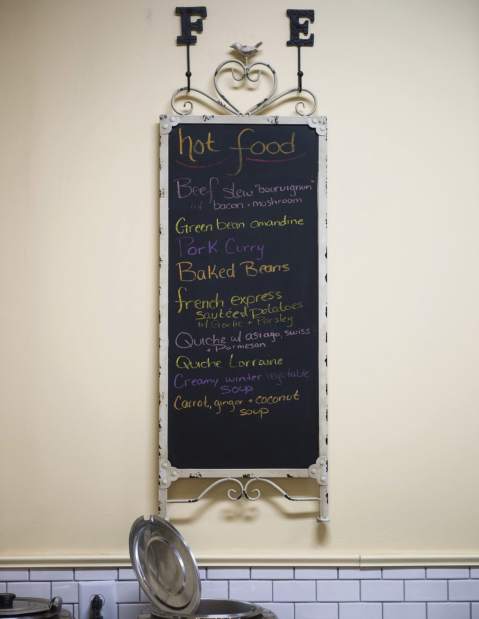 F E
hot food
Beef stew "bourvignon"
w/ bacon + mushroom
Green bean amandine
Pork Curry
Baked Beans
french express
sautéed potatoes
w/ Garlic + Parsley
Quiche w/ asiago, swiss
+ Parmesan
Quiche Lorraine
Creamy winter vegetable
soup
Carrot, ginger + coconut
soup